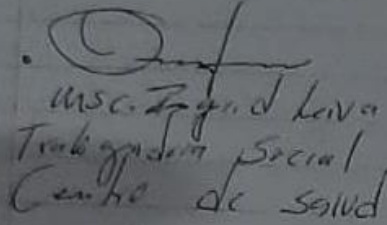 Msc. Ingrid Leiva
Trabajadora Social
Centro de salud